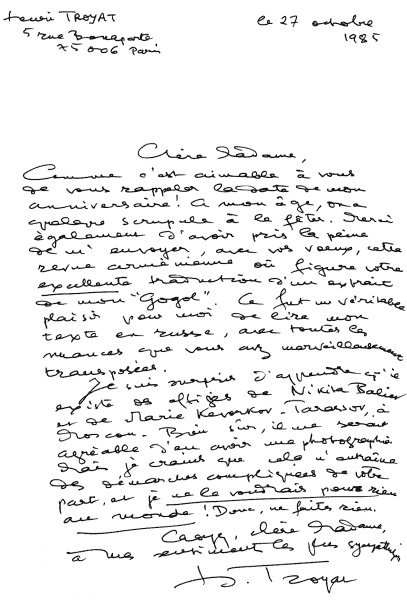 Henri TROYAT
5 rue Bonaparte
75006 Paris
le 27 octobre
1985
Chère Madame,
Comme c'est aimable à vous
de vous rappeler la date de mon
anniversaire! A mon âge, on a
quelque scrupule à le fêter. Merci
également d'avoir pris la peine
de m'envoyer, avec vos voeux, cette
revue arménienne où figure votre
excellente traduction d'un extrait
de mon "Gogol". Ce fut un véritable
plaisir pour moi de lire mon
texte en russe, avec toutes les
nuances que vous avez merveilleusement
transposées.
Je suis surpris d'apprendre qu'il
existe des effigies de Nikita Balieff
et de Marie Kevorkov-Tarassov, à
Moscou. Bien sûr, il me serait
agréable d'en avoir une photographie
Mais, je crains que cela n'entraîne
des démarches compliquées de votre
part, et je ne le voudrais pour rien
au monde! Donc, ne faites rien.
Croyez, chère Madame,
à mes sentiments les plus sympathiques
H. Troyat